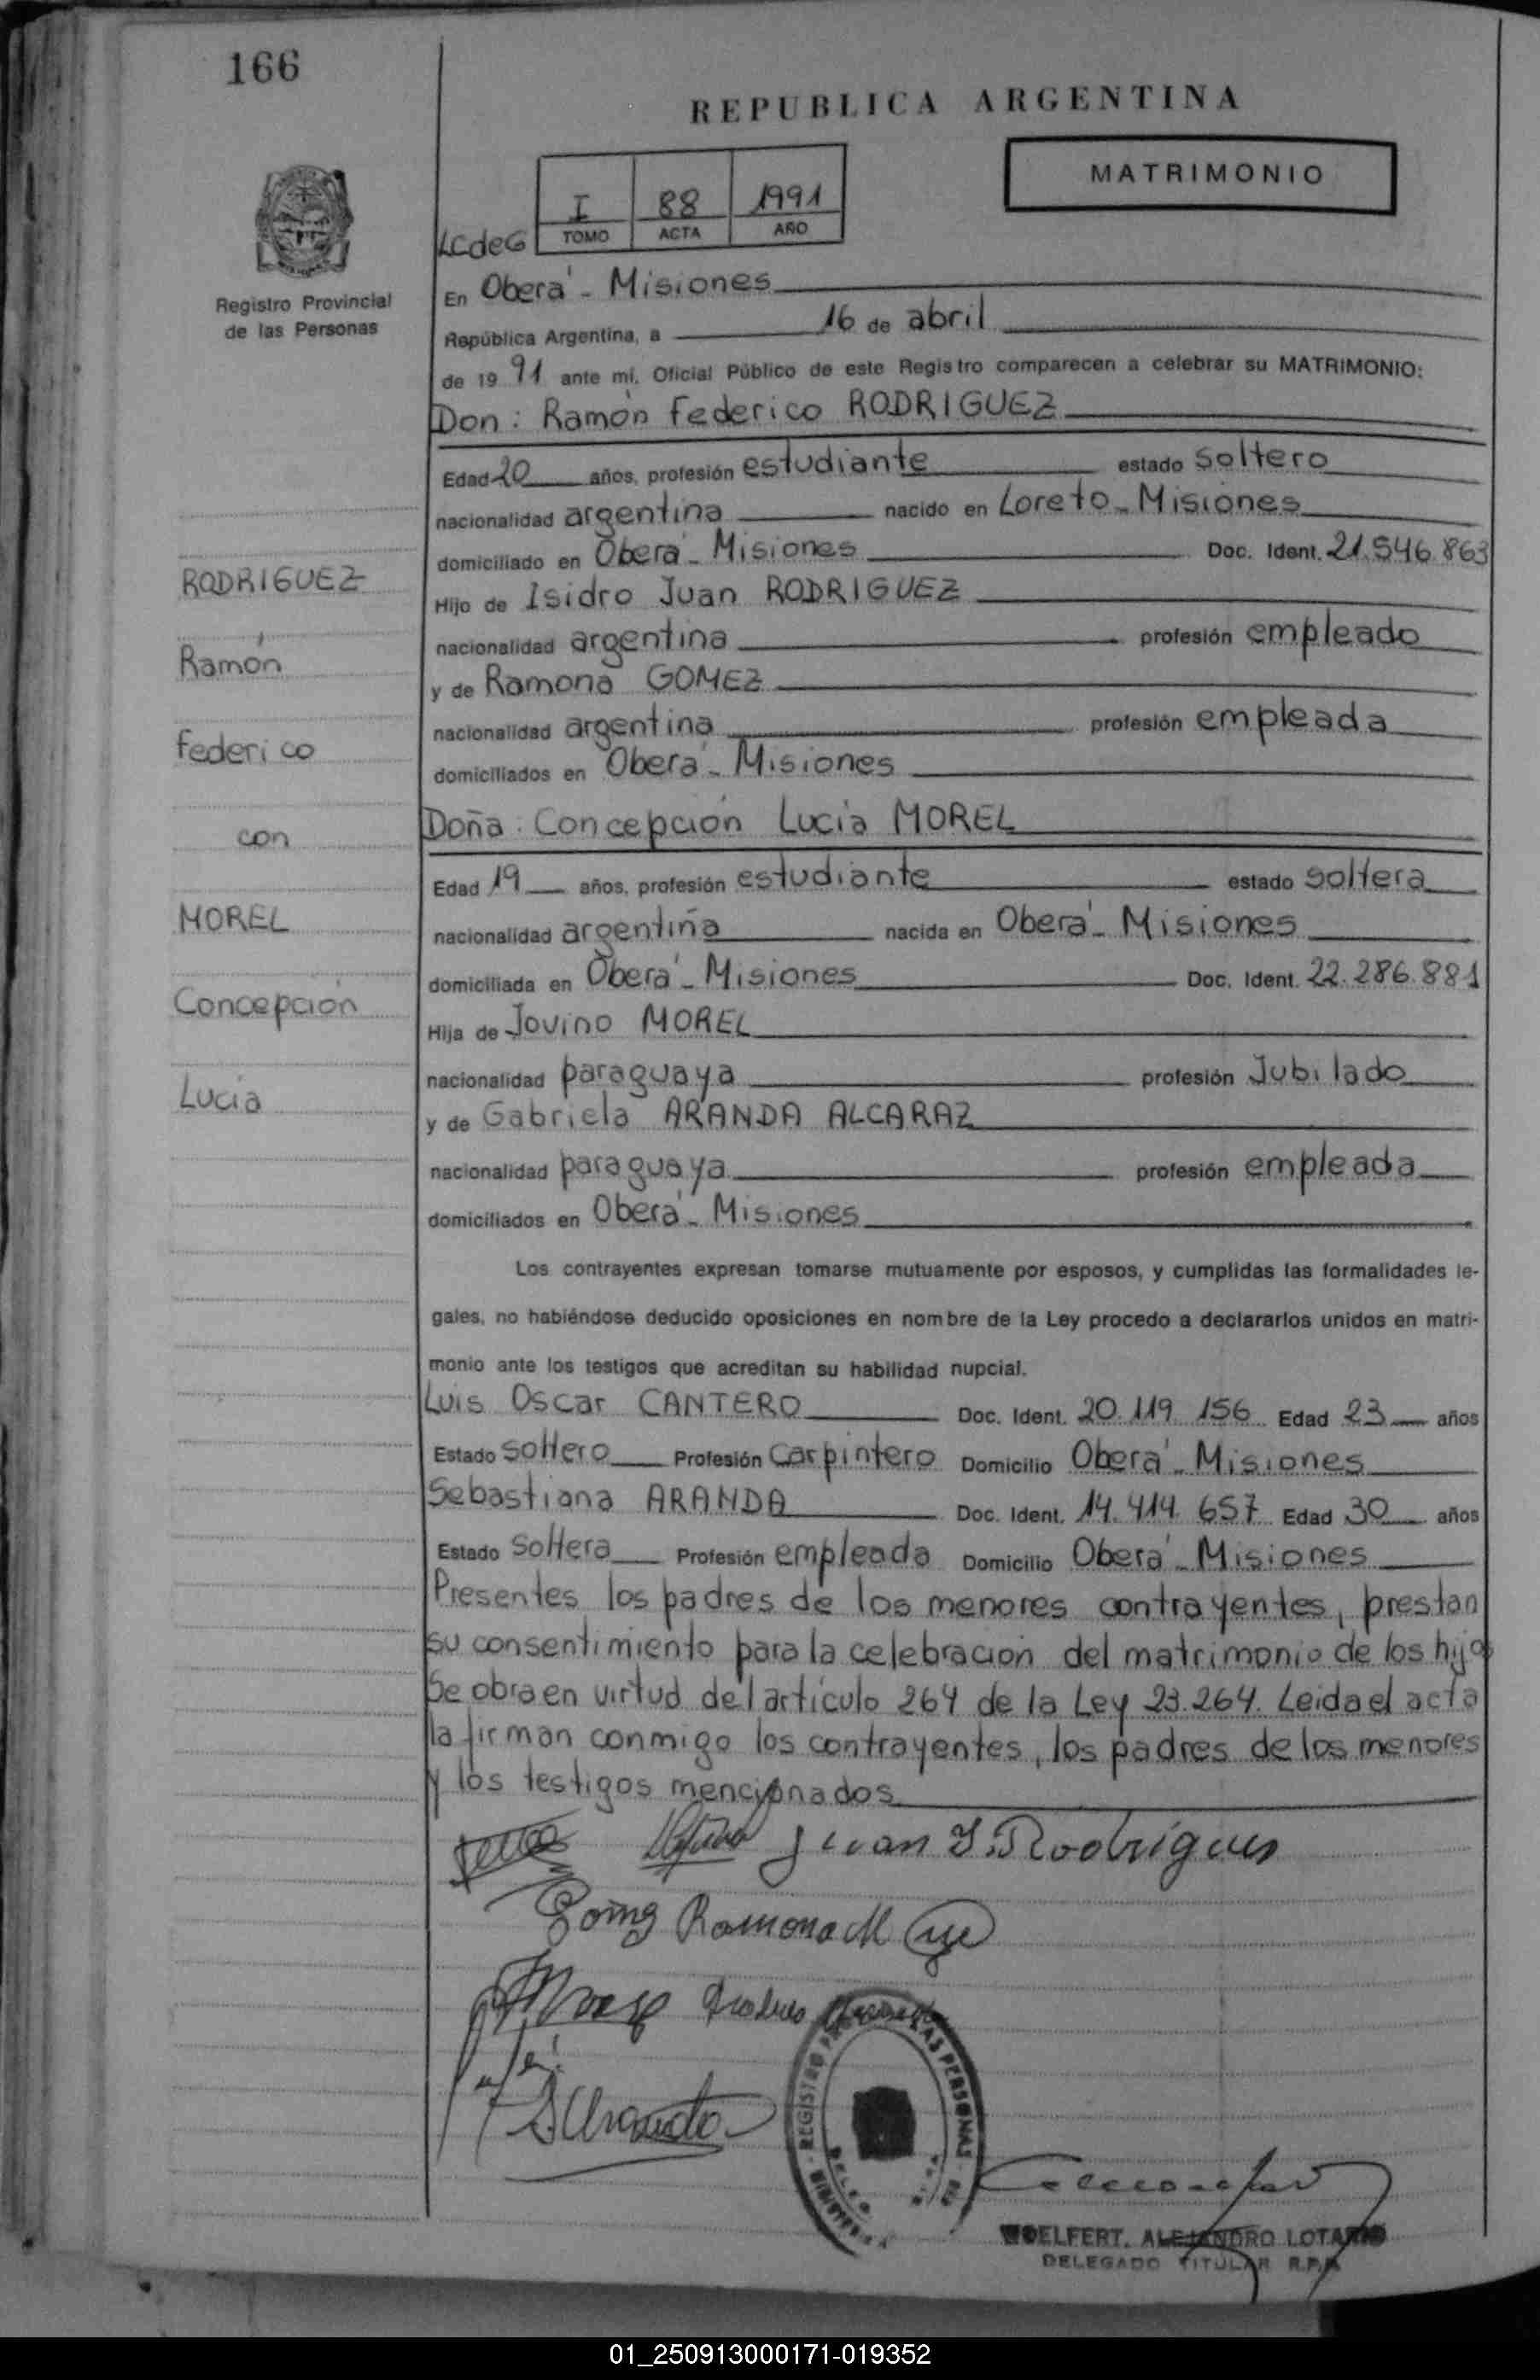 166
REPUBLICA ARGENTINA
MATRIMONIO
I 88 1991
TOMO ACTA AÑO
LCdeG
Registro Provincial
de las Personas
En Oberá - Misiones
República Argentina, a 16 de abril
de 1991 ante mí, Oficial Público de este Registro comparecen a celebrar su MATRIMONIO:
Don: Ramón Federico RODRIGUEZ
Edad 20 años, profesión estudiante estado soltero
nacionalidad argentina nacido en Loreto - Misiones
domiciliado en Oberá - Misiones Doc. Ident. 21.546.863
Hijo de Isidro Juan RODRIGUEZ
nacionalidad argentina profesión empleado
y de Ramona GOMEZ
nacionalidad argentina profesión empleada
domiciliados en Oberá - Misiones
Doña: Concepción Lucía MOREL
Edad 19 años, profesión estudiante estado soltera
nacionalidad argentiña nacida en Oberá - Misiones
domiciliada en Oberá - Misiones Doc. Ident. 22.286.881
Hija de Jovino MOREL
nacionalidad paraguaya profesión Jubilado
y de Gabriela ARANDA ALCARAZ
nacionalidad paraguaya profesión empleada
domiciliados en Oberá - Misiones
RODRIGUEZ
Ramón
Federico
con
MOREL
Concepción
Lucía
Los contrayentes expresan tomarse mutuamente por esposos, y cumplidas las formalidades le-
gales, no habiéndose deducido oposiciones en nombre de la Ley procedo a declararlos unidos en matri-
monio ante los testigos que acreditan su habilidad nupcial.
Luis Oscar CANTERO Doc. Ident. 20.119.156 Edad 23 años
Estado soltero Profesión Carpintero Domicilio Oberá - Misiones
Sebastiana ARANDA Doc. Ident. 14.414.657 Edad 30 años
Estado soltera Profesión empleada Domicilio Oberá - Misiones
Presentes los padres de los menores contrayentes, prestan
su consentimiento para la celebración del matrimonio de los hijos
Se obra en virtud del artículo 264 de la Ley 23.264. Leida el acta
la firman conmigo los contrayentes, los padres de los menores
y los testigos mencionados
Juan I. Rodrigues
Ramona M
REGISTRO LAS PERSONAS
WOELFERT, ALEJANDRO LOTARIO
DELEGADO TITULAR R.P.P.
01_250913000171-019352